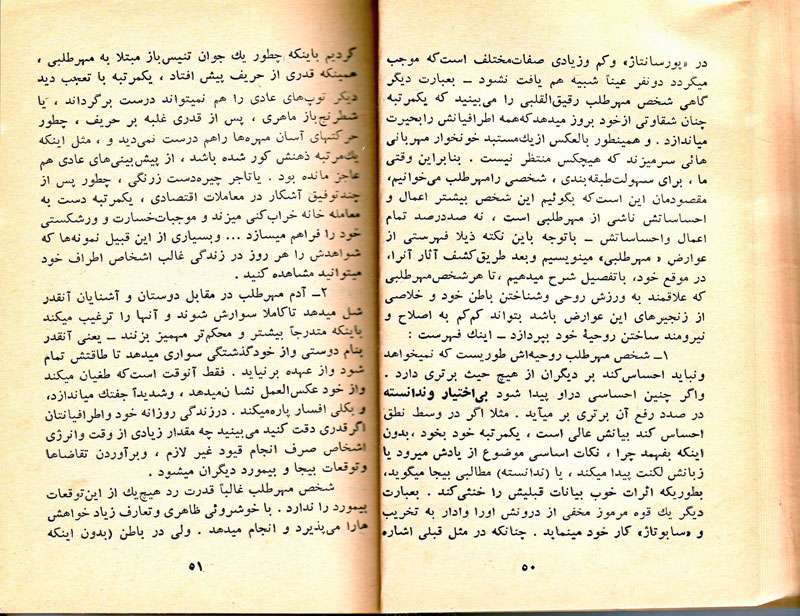 در «پورسانتاژ» وکم وزیادی صفات‌مختلف است‌که موجب
میگردد دونفر عیناً شبیه هم یافت نشود ــ بعبارت دیگر
گاهی شخص مهرطلب رقیق‌القلبی را می‌بینید که یکمرتبه
چنان شقاوتی ازخود بروز میدهدکه‌همه اطرافیانش رابحیرت
میاندازد . و همینطور بالعکس ازیك‌مستبد خونخوار مهربانی
هائی سرمیزند که هیچکس منتظر نیست . بنابراین وقتی
ما ، برای سهولت‌طبقه‌بندی ، شخصی رامهرطلب می‌خوانیم،
مقصودمان این است‌که بگوئیم این شخص بیشتر اعمال و
احساساتش ناشی از مهرطلبی است ، نه صددرصد تمام
اعمال واحساساتش ــ باتوجه باین نکته ذیلا فهرستی از
عوارض « مهرطلبی» مینویسیم وبعد طریق‌کشف آثار آنرا،
در موقع خود، باتفصیل شرح میدهیم ، تا هرشخص‌مهرطلبی
که علاقمند به ورزش روحی وشناختن باطن خود و خلاصی
از زنجیرهای این عوارض باشد بتواند کم‌کم به اصلاح و
نیرومند ساختن روحیهٔ خود بپردازد ــ اینك فهرست :
۱ــ شخص مهرطلب روحیه‌اش طوریست‌که نمیخواهد
ونباید احساس‌کند بر دیگران از هیچ حیث برتری دارد .
واگر چنین احساسی دراو پیدا شود بی‌اختیار وندانسته
در صدد رفع آن برتری بر میآید . مثلا اگر در وسط نطق
احساس کند بیانش عالی است ، یکمرتبه خود بخود ،بدون
اینکه بفهمد چرا ، نکات اساسی موضوع از یادش میرود یا
زبانش لکنت پیدا میکند ، یا (ندانسته) مطالبی بیجا میگوید،
بطوریکه اثرات خوب بیانات قبلیش را خنثی‌کند . بعبارت
دیگر یك قوه مرموز مخفی از درونش اورا وادار به تخریب
و «سابوتاژ» کار خود مینماید . چنانکه در مثل قبلی اشاره
۵۰
گردیم باینکه چطور یك جوان تنیس‌باز مبتلا به مهرطلبی ،
همینکه قدری از حریف پیش افتاد ، یکمرتبه با تعجب دید
دیگر توپ‌های عادی را هم نمیتواند درست برگرداند ، یا
شطرنج‌باز ماهری ، پس از قدری غلبه بر حریف ، چطور
حرکتهای آسان مهره‌ها راهم درست نمی‌دید و ، مثل اینکه
یك‌مرتبه ذهنش کور شده باشد ، از پیش‌بینی‌های عادی هم
عاجز مانده بود . یاتاجر چیره‌دست زرنگی ، چطور پس از
چندتوفیق آشکار در معاملات اقتصادی ، یکمرتبه دست به
معامله خانه خراب‌کنی میزند و موجبات‌خسارت و ورشکستی
خود را فراهم میسازد ... وبسیاری از این قبیل نمونه‌ها که
شواهدش را هر روز در زندگی غالب اشخاص اطراف خود
میتوانید مشاهده کنید .
۲ــ آدم مهرطلب در مقابل دوستان و آشنایان آنقدر
شل میدهد تاکاملا سوارش شوند و آنها را ترغیب میکند
باینکه متدرجاً بیشتر و محکم‌تر مهمیز بزنند ــ یعنی آنقدر
بنام دوستی واز خودگذشتگی سواری میدهد تا طاقتش تمام
شود واز عهده برنیاید . فقط آنوقت است‌که طغیان میکند
واز خود عکس‌العمل نشا ن‌میدهد ، وشدیدآ جفتك میاندازد،
و بکلی افسار پاره‌میکند . درزندگی روزانه خود واطرافیانتان
اگرقدری دقت کنید می‌بینید چه مقدار زیادی از وقت وانرژی
اشخاص صرف انجام قیود غیر لازم ، وبرآوردن تقاضاها
وتوقعات بیجا و بیمورد دیگران میشود .
شخص مهرطلب غالباً قدرت رد هیچ‌یك از این‌توقعات
بیمورد را ندارد . با خوشروئی ظاهری وتعارف زیاد خواهش
هارا می‌پذیرد و انجام میدهد . ولی در باطن (بدون اینکه
۵۱